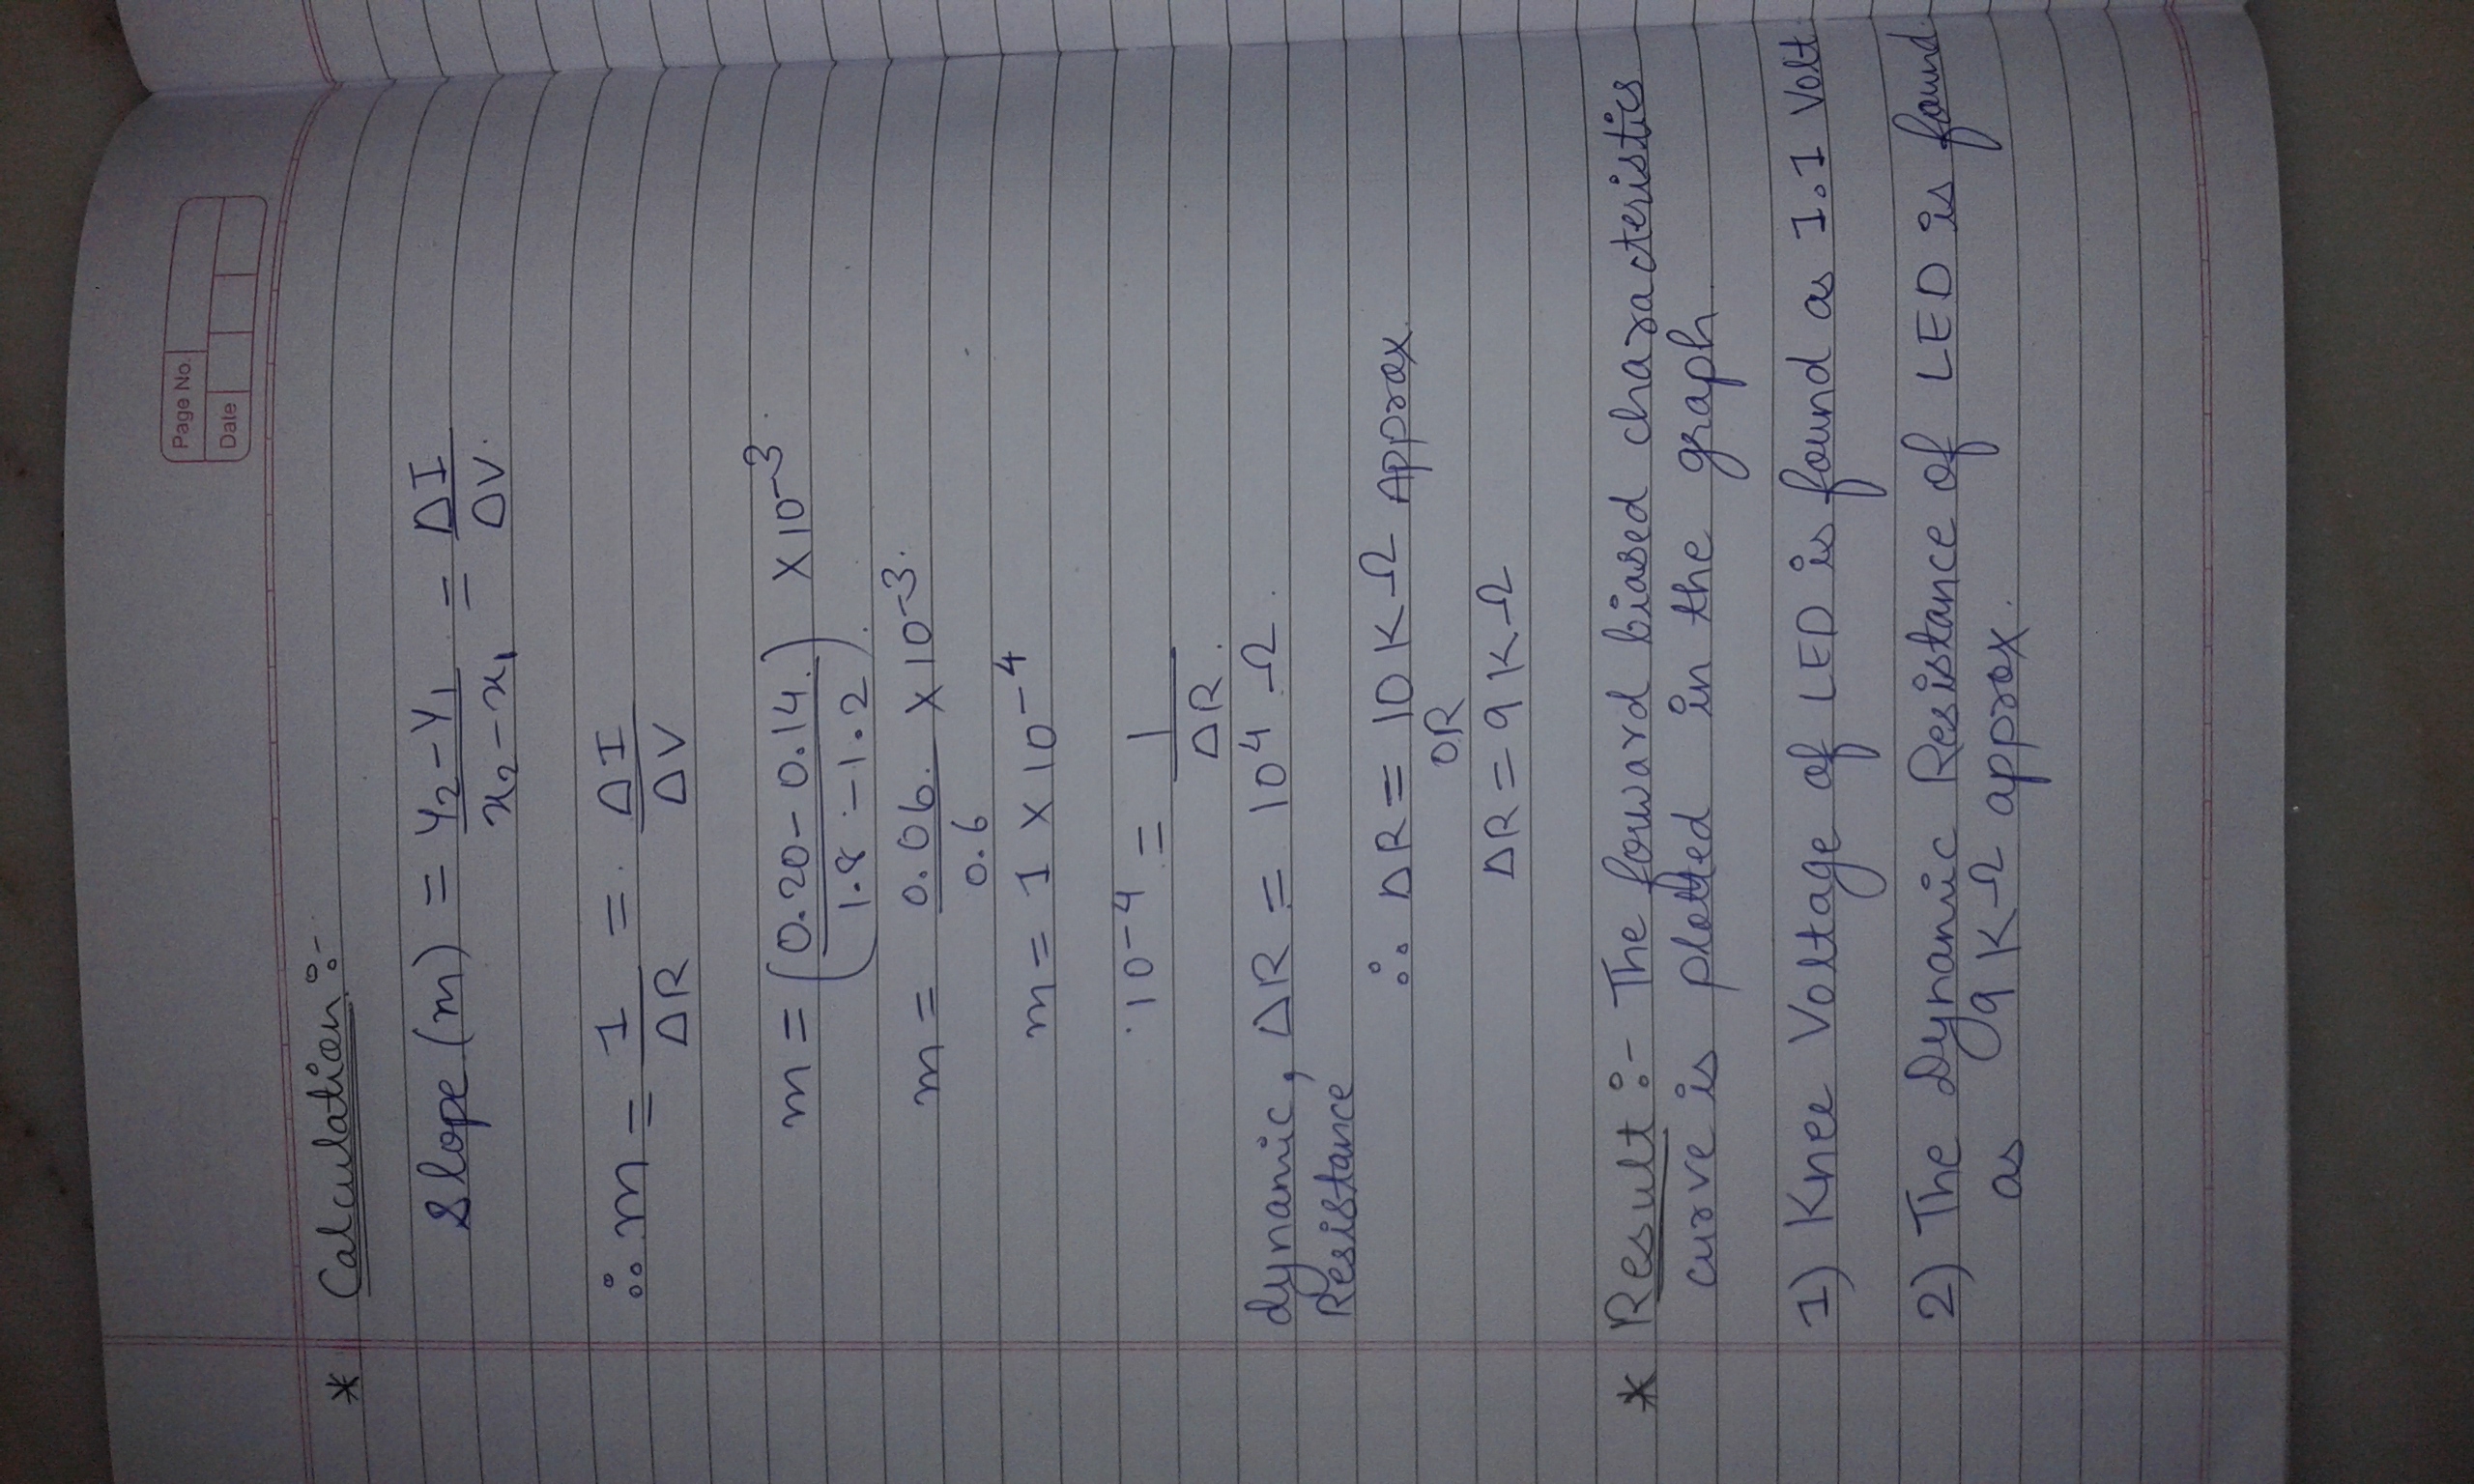 Page No.
Date
* Calculation :-
Slope (m) = Y2-Y1 / x2-x1 = ΔI / ΔV.
∴ m = 1 / ΔR = ΔI / ΔV
m = (0.20 - 0.14. / 1.8 - 1.2) × 10^-3.
m = 0.06. / 0.6 × 10^-3.
m = 1 × 10^-4
10^-4 = 1 / ΔR.
dynamic, ΔR = 10^4 Ω.
Resistance
∴ ΔR = 10 K Ω Approx.
OR
ΔR = 9 K Ω
* Result :- The forward biased characteristics
curve is plotted in the graph
1) Knee Voltage of LED is found as 1.1 Volt
2) The Dynamic Resistance of LED is found
as 9 K Ω approx.